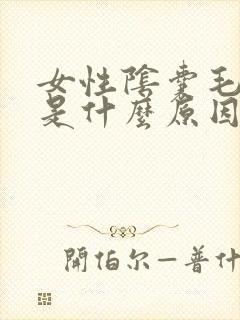 女性陰囊毛
是什麼原因
開伯尔—普什